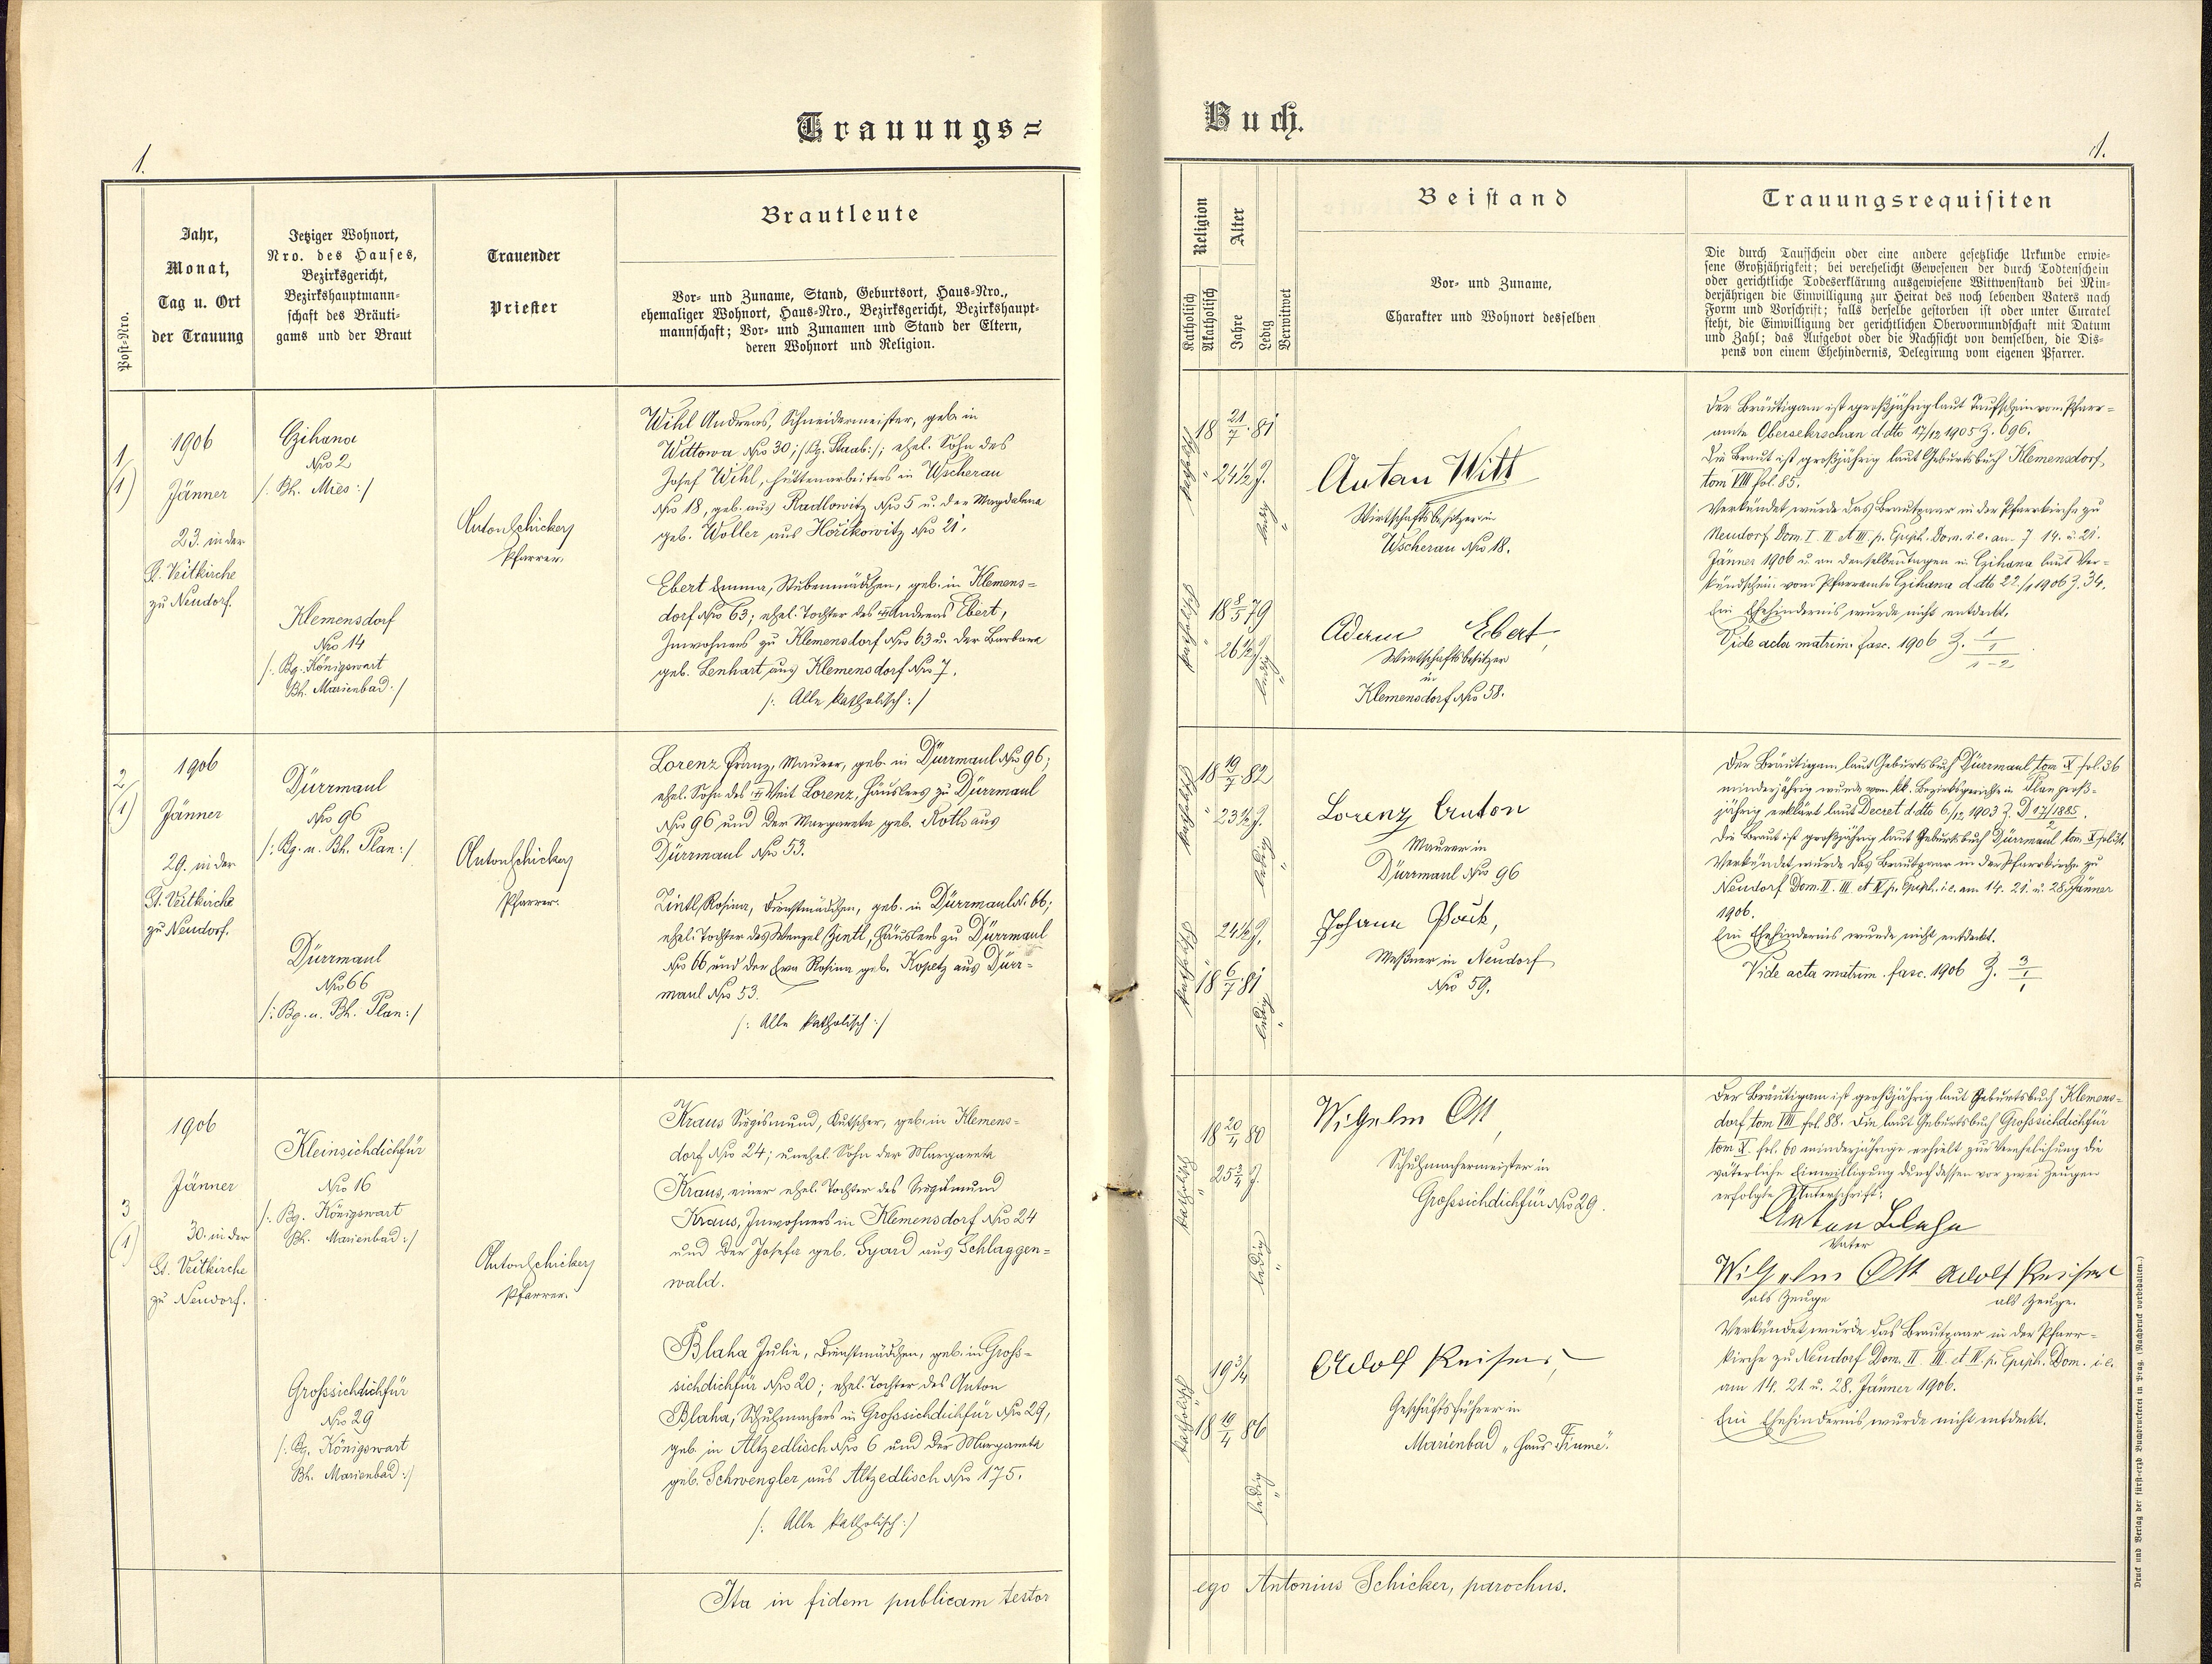 Trauungs=
Buch.
1.
1.
Post-Nro.
Jahr,
Monat,
Tag u. Ort
der Trauung
Jetziger Wohnort,
Nro. des Hauses,
Bezirksgericht,
Bezirkshauptmann-
schaft des Bräuti-
gams und der Braut
Trauender
Priester
Brautleute
Vor- und Zuname, Stand, Geburtsort, Haus-Nro.,
ehemaliger Wohnort, Haus-Nro., Bezirksgericht, Bezirkshaupt-
mannschaft; Vor- und Zunamen und Stand der Eltern,
deren Wohnort und Religion.
Religion
Katholisch
Akatholisch
Alter
Jahre
Ledig
Verwitwet
Beistand
Vor- und Zuname,
Charakter und Wohnort desselben
Trauungsrequisiten
Die durch Taufschein oder eine andere gesetzliche Urkunde erwie-
sene Großjährigkeit; bei verehelicht Gewesenen der durch Todtenschein
oder gerichtliche Todeserklärung ausgewiesene Wittwenstand bei Min-
derjährigen die Einwilligung zur Heirat des noch lebenden Vaters nach
Form und Vorschrift; falls derselbe gestorben ist oder unter Curatel
steht, die Einwilligung der gerichtlichen Obervormundschaft mit Datum
und Zahl; das Aufgebot oder die Nachsicht von demselben, die Dis-
pens von einem Ehehindernis, Delegirung vom eigenen Pfarrer.
1
(1)
1906
Jänner
23. in der
St. Veitkirche
zu Neudorf.
Czihana
Nro 2
/: Bh. Mies :/
Klemensdorf
Nro 14
/: Bg. Königswart
Bh. Marienbad :/
Anton Schicker
Pfarrer.
Wihl Andreas, Schneidermeister, geb. in
Wittowa Nro 30 /: Bg. Staab :/; ehel. Sohn des
Josef Wihl, Hüttenarbeiters in Wscherau
Nro 18, geb. aus Radlowitz Nro 5 u. der Magdalena
geb. Woller aus Hořikowitz Nro 21.
Ebert Emma, Stubenmädchen, geb. in Klemens-
dorf Nro 63; ehel. Tochter des Andreas Ebert,
Inwohners zu Klemensdorf Nro 63 u. der Barbara
geb. Lenhart aus Klemensdorf Nro 7.
/: Alle katholisch :/
katholisch
18 21/7 81
24 1/2 J.
ledig
katholisch
18 8/5 79
26 1/2 J.
ledig
Anton Witt
Wirtschaftsbesitzer in
Wscherau Nro 18.
Adam Ebert,
Wirtschaftsbesitzer
in
Klemensdorf Nro 58.
Der Bräutigam ist großjährig laut Taufschein vom Pfarr-
amte Obersekerschan ddto 17/12 1905 Z. 696.
Die Braut ist großjährig laut Geburtsbuch Klemensdorf,
tom VIII fol. 85.
Verkündet wurde das Brautpaar in der Pfarrkirche zu
Neudorf Dom. I. II. et III. p. Epiph. Dom. i. e. am 7. 14. u. 21.
Jänner 1906 u. an denselben Tagen in Czihana laut Ver-
kündschein vom Pfarramte Czihana ddto 22./1 1906 Z. 34.
Ein Ehehindernis wurde nicht entdeckt.
Vide acta matrim. fasc. 1906 Z. 1/1
1-2
2
(1)
1906
Jänner
29. in der
St. Veitkirche
zu Neudorf.
Dürrmaul
Nro 96
/: Bg. u. Bh. Plan :/
Dürrmaul
Nro 66
/: Bg. u. Bh. Plan :/
Anton Schicker
Pfarrer.
Lorenz Franz, Maurer, geb. in Dürrmaul Nro 96;
ehel. Sohn des Veit Lorenz, Häuslers zu Dürrmaul
Nro 96 und der Margareta geb. Roth aus
Dürrmaul Nro 53.
Zintl Rosina, Dienstmädchen, geb. in Dürrmaul N. 66;
ehel. Tochter des Wenzel Zintl, Häuslers zu Dürrmaul
Nro 66 und der Eva Rosina geb. Kopetz aus Dürr-
maul Nro 53.
/: Alle katholisch :/
katholisch
18 19/7 82
23 1/2 J.
ledig
katholisch
24 1/2 J.
18 6/7 81
ledig
Lorenz Anton
Maurer in
Dürrmaul Nro 96
Johann
Meßner in Neudorf
Nro 59.
Der Bräutigam laut Geburtsbuch Dürrmaul tom X fol. 36
minderjährig wurde vom kk. Bezirksgerichte in Plan groß-
jährig erklärt laut Decret ddto 6./12 1903 Z. D 17/1885.
2
Die Braut ist großjährig laut Geburtsbuch Dürrmaul tom. X fol.
Verkündet wurde das Brautpaar in der Pfarrkirche zu
Neudorf Dom. II. III. et IV. p. Epiph. i. e. am 14. 21. u. 28. Jänner
1906.
Ein Ehehindernis wurde nicht entdeckt.
Vide acta matrim. fasc. 1906 Z. 3/1
3
(1)
1906
Jänner
30. in der
St. Veitkirche
zu Neudorf.
Kleinsichdichfür
Nro 16
/: Bg. Königswart
Bh. Marienbad :/
Grosssichdichfür
Nro 29
/: Bg. Königswart
Bh. Marienbad :/
Anton Schicker
Pfarrer.
Kraus Sigismund, Kutscher, geb. in Klemens-
dorf Nro 24; unehel. Sohn der Margareta
Kraus, einer ehel. Tochter des Sigismund
Kraus, Inwohners in Klemensdorf Nro 24
und der Josefa geb. Gyard aus Schlaggen-
wald.
Blaha Julie, Dienstmädchen, geb. in Gross-
sichdichfür Nro 20; ehel. Tochter des Anton
Blaha, Schuhmachers in Grosssichdichfür Nro 29,
geb. in Altzedlisch Nro 6 und der Margareta
geb. Schwengler aus Altzedlisch Nro 175.
/: Alle katholisch :/
katholisch
18 20/4 80
25 3/4 J.
ledig
katholisch
19 3/4
18 19/4 86
ledig
Wilhelm Ott,
Schuhmachermeister in
Grosssichdichfür Nro 29.
Adolf Reiser,
Geschäftsführer in
Marienbad „Haus Fiume".
Der Bräutigam ist großjährig laut Geburtsbuch Klemens-
dorf tom VIII fol. 88. Die laut Geburtsbuch Grosssichdichfür
tom X. fol. 60 minderjährige erhielt zur Verehelichung die
väterliche Einwilligung durch dessen vor zwei Zeugen
erfolgte Unterschrift:
Anton Blaha
Vater
Wilhelm Ott Adolf Reiser
als Zeuge als Zeuge.
Verkündet wurde das Brautpaar in der Pfarr-
kirche zu Neudorf Dom. II. III. et IV. p. Epiph. Dom. i. e.
am 14. 21. u. 28. Jänner 1906.
Ein Ehehindernis wurde nicht entdeckt.
Ita in fidem publicam testor
ego Antonius Schicker, parochus.
Druck und Verlag der fürst-erzb Buchdruckerei in Prag. (Nachdruck vorbehalten.)